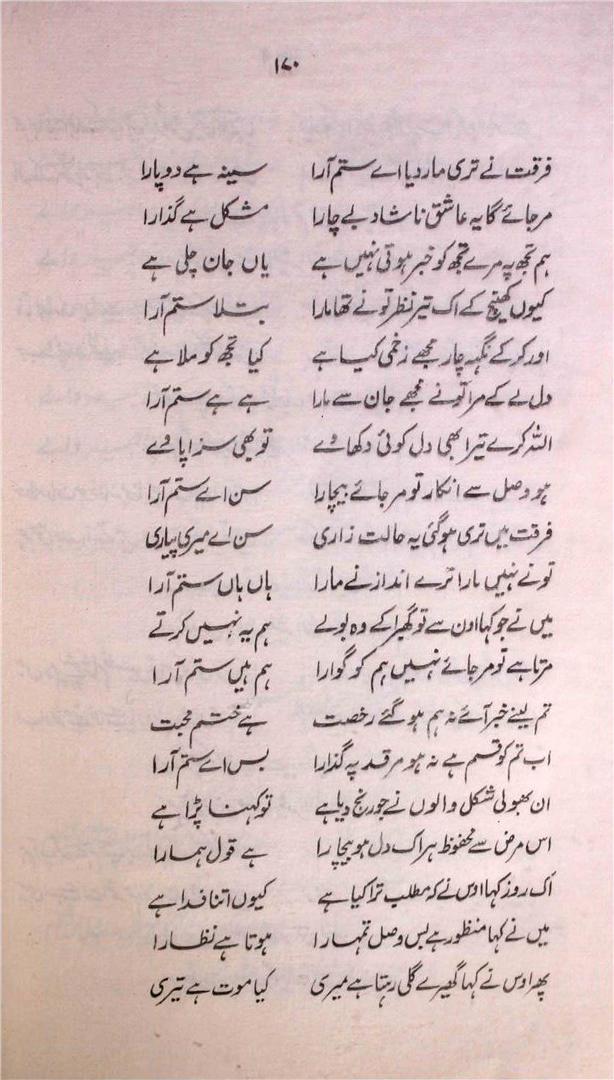 ۱۷۰
فرقت نے تری مار دیا اے ستم آرا سینہ ہے دوپارا
مر جائے گا یہ عاشق ناشاد بے چارا مشکل ہے گذارا
ہم تجھ پہ مرے تجھ کو خبر ہوتی نہیں ہے یاں جان چلی ہے
کیوں کھینچ کے اک تیر نظر تو نے تھا مارا بتلا ستم آرا
اور کر کے نگہہ چار مجھے زخمی کیا ہے کیا تجھ کو ملا ہے
دل لے کے مرا تو نے مجھے جان سے مارا ہے ہے ستم آرا
اللہ کرے تیرا بھی دل کوئی دکھاوے تو بھی سزا پاوے
ہو وصل سے انکار تو مر جائے بیچارا سن اے ستم آرا
فرقت میں تری ہو گئی یہ حالت زاری سن اے میری پیاری
تو نے نہیں مارا ترے انداز نے مارا ہاں ہاں ستم آرا
میں نے جو کہا اون سے تو گھبرا کے وہ بولے ہم یہ نہیں کرتے
مرتا ہے تو مر جائے نہیں ہم کو گوارا ہم ہیں ستم آرا
تم لینے خبر آئے نہ ہم ہو گئے رخصت ہے ختم محبت
اب تم کو قسم ہے نہ ہو مرقد پہ گذارا بس اے ستم آرا
ان بھولی شکل والوں نے جو رنج دیا ہے تو کہنا پڑا ہے
اس مرض سے محفوظ ہر اک دل ہو بیچارا ہے قول ہمارا
اک روز کہا اوس نے کہ مطلب ترا کیا ہے کیوں اتنا فدا ہے
میں نے کہا منظور ہے بس وصل تمہارا ہوتا ہے نظارا
پھر اوس نے کہا گھیرے گلی رہتا ہے میری کیا موت ہے تیری